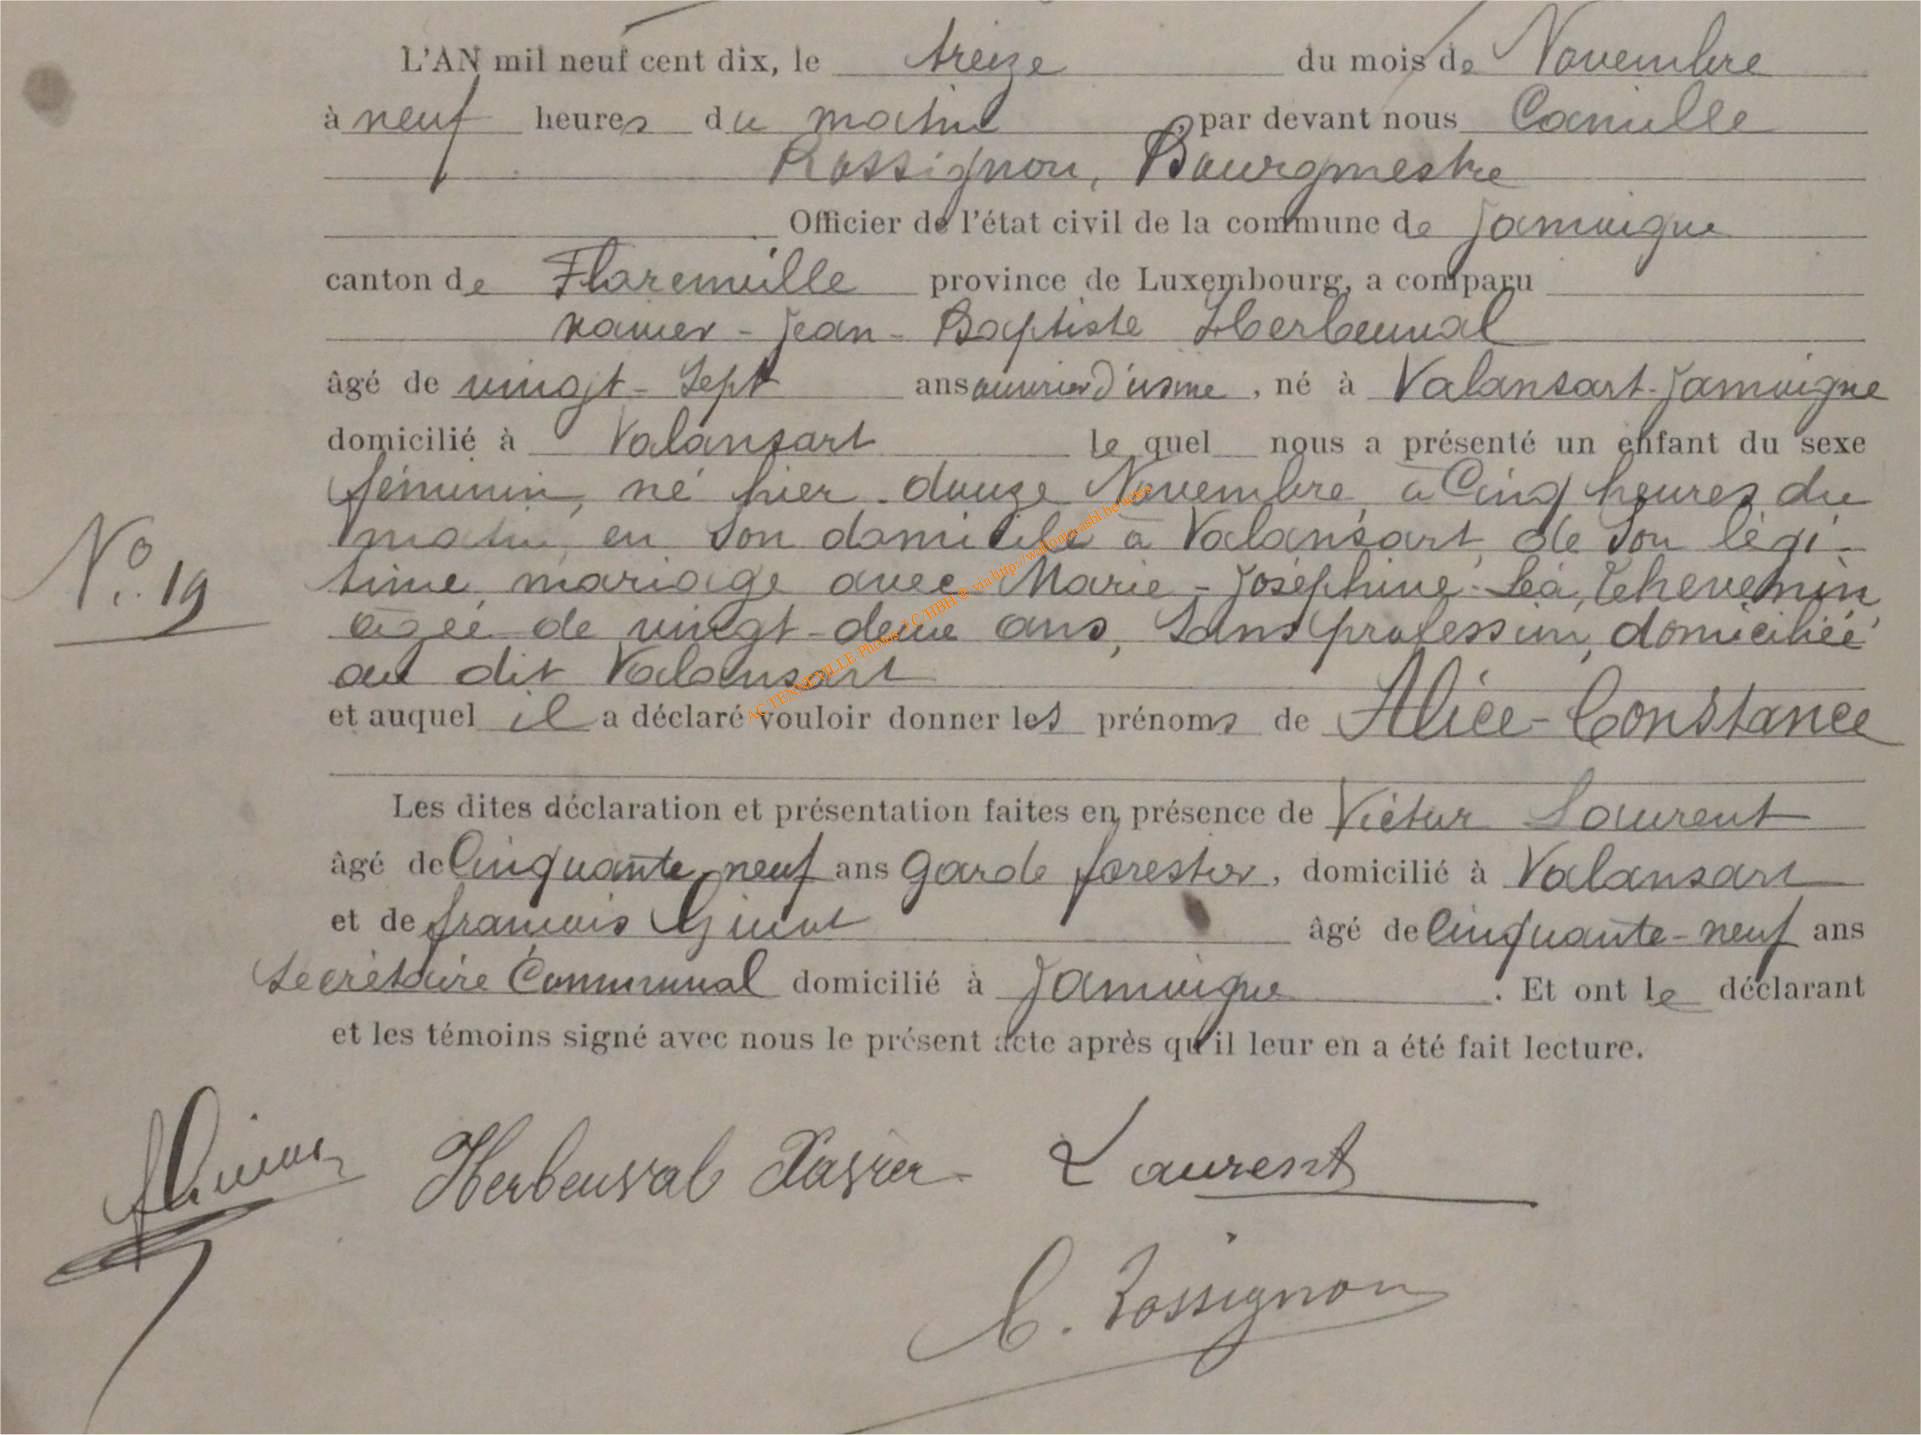 L'AN mil neuf cent dix, le treize du mois de Novembre
à neuf heures du matin, par devant nous Camille
Rossignon, Bourgmestre
Officier de l'état civil de la commune de Jamoigne
canton de Florenville province de Luxembourg, a comparu
Xavier-Jean-Baptiste Herbeuval
âgé de vingt-sept ans ouvrier d'usine, né à Valansart-Jamoigne
domicilié à Valansart lequel nous a présenté un enfant du sexe
féminin, né hier douze Novembre, à Cinq heures du
matin, en son domicile à Valansart, de son légi-
time mariage avec Marie-Joséphine-Léa, Thevenin
âgée de vingt-deux ans, sans profession, domiciliée
au dit Valansart
et auquel il a déclaré vouloir donner les prénoms de Alice-Constance
Les dites déclaration et présentation faites en présence de Victor Laurent
âgé de Cinquante neuf ans Garde forestier, domicilié à Valansart
N° 19
et de françois Ginot âgé de Cinquante-neuf ans
Secrétaire Communal domicilié à Jamoigne. Et ont le déclarant
et les témoins signé avec nous le présent acte après qu'il leur en a été fait lecture.
Herbeuval Xavier Laurent
C. Rossignon